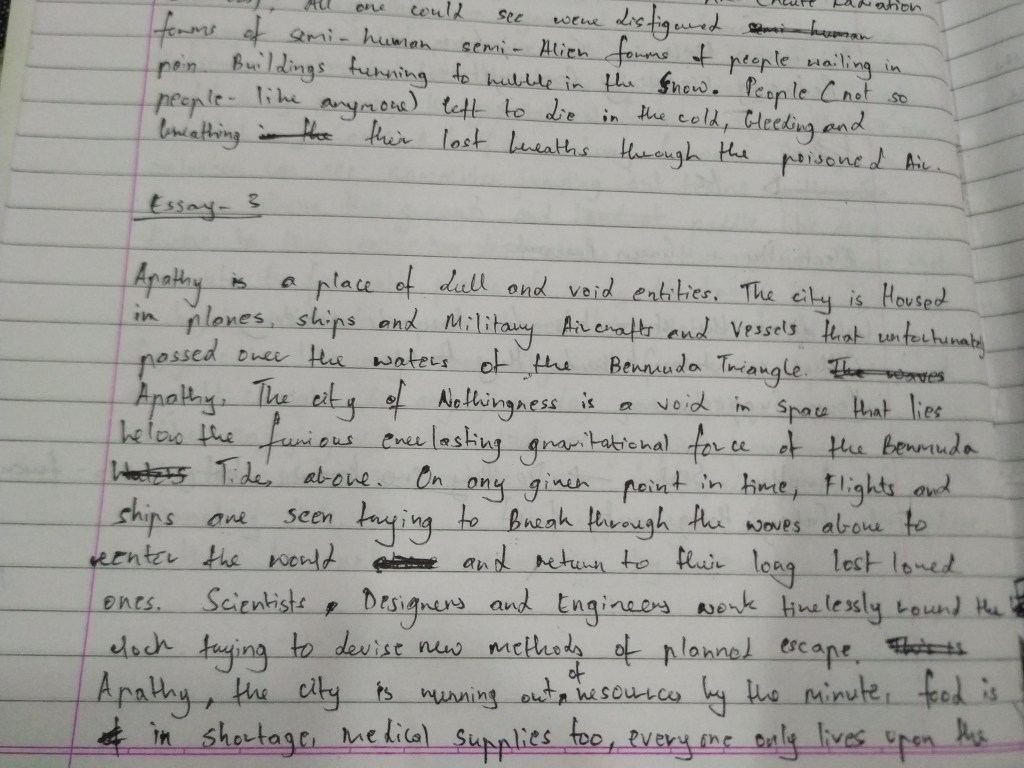 All one could see were disfigured semi-human
forms of semi-human semi-Alien forms of people wailing in
pain. Buildings turning to rubble in the snow. People (not so
people-like anymore) left to die in the cold, bleeding and
breathing in the their last breaths through the poisoned Air.
Essay-3
Apathy is a place of dull and void entities. The city is Housed
in planes, ships and Military Aircrafts and Vessels that unfortunately
passed over the waters of the Bermuda Triangle. The waves
Apathy, The city of Nothingness is a void in space that lies
below the furious everlasting gravitational force of the Bermuda
Waters Tide, above. On any given point in time, Flights and
ships are seen trying to Break through the waves above to
reenter the world and return to their long lost loved
ones. Scientists, Designers and Engineers work tirelessly round the
clock trying to devise new methods of planned escape. This is
Apathy, the city is running out of resources by the minute, food is
in shortage, medical supplies too, everyone only lives upon the